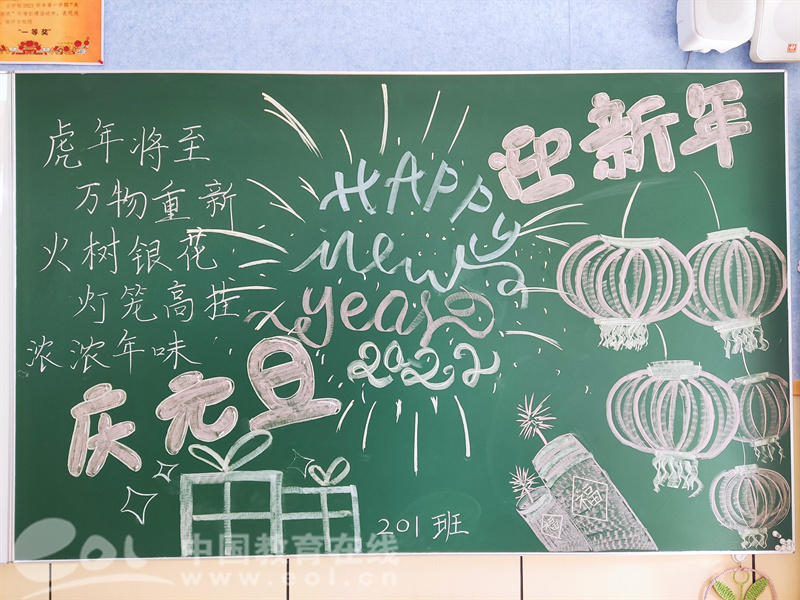 "一等奖"
虎年将至
万物重新
火树银花
灯笼高挂
浓浓年味
庆元旦
HAPPY
new
year
2022
迎新年
福
201班
eol 中国教育在线
www.eol.cn